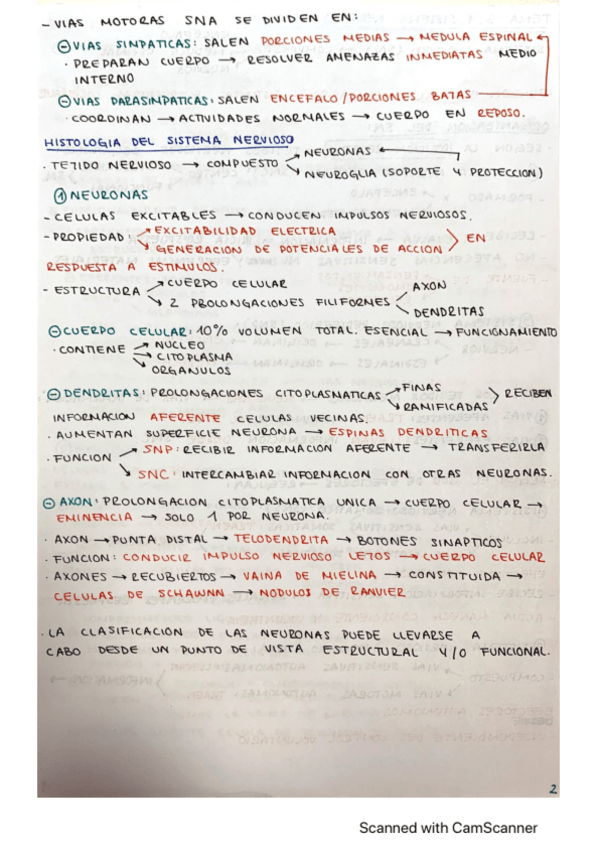 - VIAS MOTORAS SNA SE DIVIDEN EN:
⊖ VIAS SIMPATICAS: SALEN PORCIONES MEDIAS → MEDULA ESPINAL
· PREPARAN CUERPO → RESOLVER AMENAZAS INMEDIATAS MEDIO
INTERNO
⊖ VIAS PARASIMPATICAS: SALEN ENCEFALO/PORCIONES BAJAS
· COORDINAN → ACTIVIDADES NORMALES → CUERPO EN REPOSO.
HISTOLOGIA DEL SISTEMA NERVIOSO
· TEJIDO NERVIOSO → COMPUESTO
NEURONAS
NEUROGLIA (SOPORTE Y PROTECCION)
① NEURONAS
- CELULAS EXCITABLES → CONDUCEN IMPULSOS NERVIOSOS.
- PROPIEDAD:
EXCITABILIDAD ELECTRICA
GENERACION DE POTENCIALES DE ACCION
EN
RESPUESTA A ESTIMULOS.
- ESTRUCTURA
CUERPO CELULAR
2 PROLONGACIONES FILIFORMES
AXON
DENDRITAS
⊖ CUERPO CELULAR: 10% VOLUMEN TOTAL. ESENCIAL → FUNCIONAMIENTO
· CONTIENE
NUCLEO
CITOPLASMA
ORGANULOS
⊖ DENDRITAS: PROLONGACIONES CITOPLASMATICAS
FINAS
RAMIFICADAS
RECIBEN
INFORMACION AFERENTE CELULAS VECINAS.
· AUMENTAN SUPERFICIE NEURONA → ESPINAS DENDRITICAS
· FUNCION
SNP: RECIBIR INFORMACION AFERENTE → TRANSFERIRLA
SNC: INTERCAMBIAR INFORMACION CON OTRAS NEURONAS.
⊖ AXON: PROLONGACION CITOPLASMATICA UNICA → CUERPO CELULAR →
EMINENCIA → SOLO 1 POR NEURONA.
· AXON → PUNTA DISTAL → TELODENDRITA → BOTONES SINAPTICOS
· FUNCION: CONDUCIR IMPULSO NERVIOSO LEJOS → CUERPO CELULAR
· AXONES → RECUBIERTOS → VAINA DE MIELINA → CONSTITUIDA →
CELULAS DE SCHAWNN → NODULOS DE RANVIER
· LA CLASIFICACION DE LAS NEURONAS PUEDE LLEVARSE A
CABO DESDE UN PUNTO DE VISTA ESTRUCTURAL Y/O FUNCIONAL.
2
Scanned with CamScanner